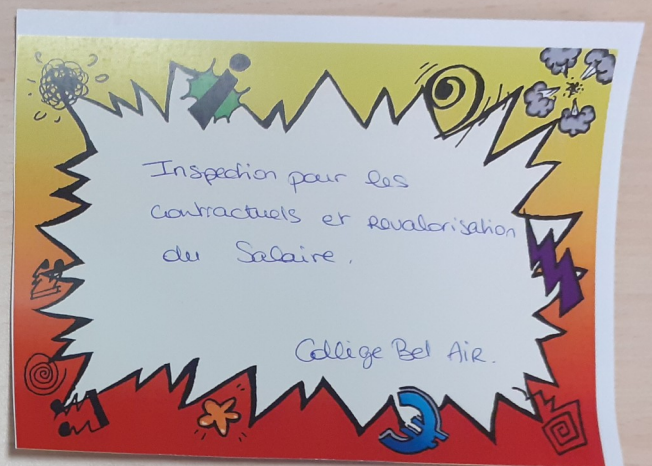 Inspection pour les
contractuels et Revalorisation
du Salaire.
Collège Bel Air.